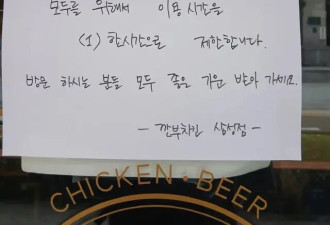 모두를 위해서 이용시간을
(1) 한시간으로 제한합니다.
방문 하시는 분들 모두 좋은 기운 받아 가세요.
- 깐부치킨 삼성점 -
CHICKEN • BEER